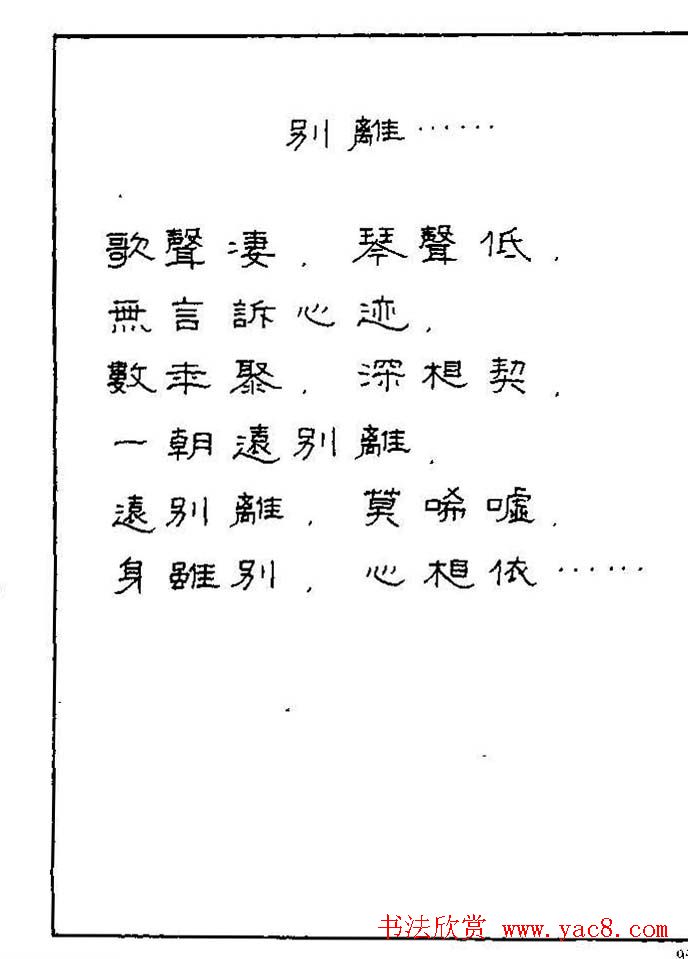 别離……
歌聲淒，琴聲低，
無言訴心迹，
數年聚，深相契，
一朝遠别離，
遠别離，莫唏噓，
身雖别，心相依……
书法欣赏 www.yac8.com